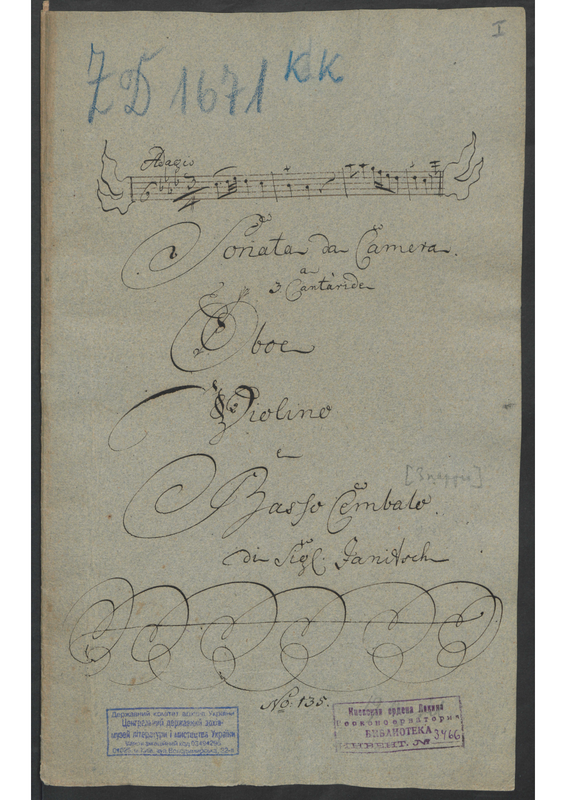 I
ZD 1671 KK
Adagio
Sonata da Camera.
a
3 Cantaride
Oboe
Violino
e
[3 parties]
Basso Cembalo.
di Sigl. Janitsch
No: 135.
Державний комітет архівів України
Центральний державний архів-
музей літератури і мистецтва України
Ідентифікаційний код
Киевская ордена Ленина
госконсерватория
БИБЛИОТЕКА
ИНВЕНТ. № 3466